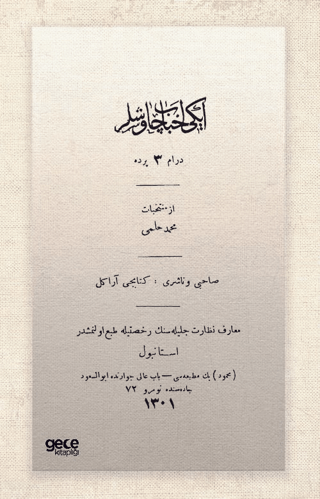 ایکی احباب چاوشلر
درام ٣ پرده
از منتخبات
محمد حلمی
صاحبی و ناشری : کتابجی آراکل
معارف نظارت جلیله سنك رخصتیله طبع اولنمشدر
استانبول
(محمود) بك مطبعه سی — باب عالی جوارنده ابوالسعود
جاده سنده نومرو ٧٢
١٣٠١
gece
kitaplığı